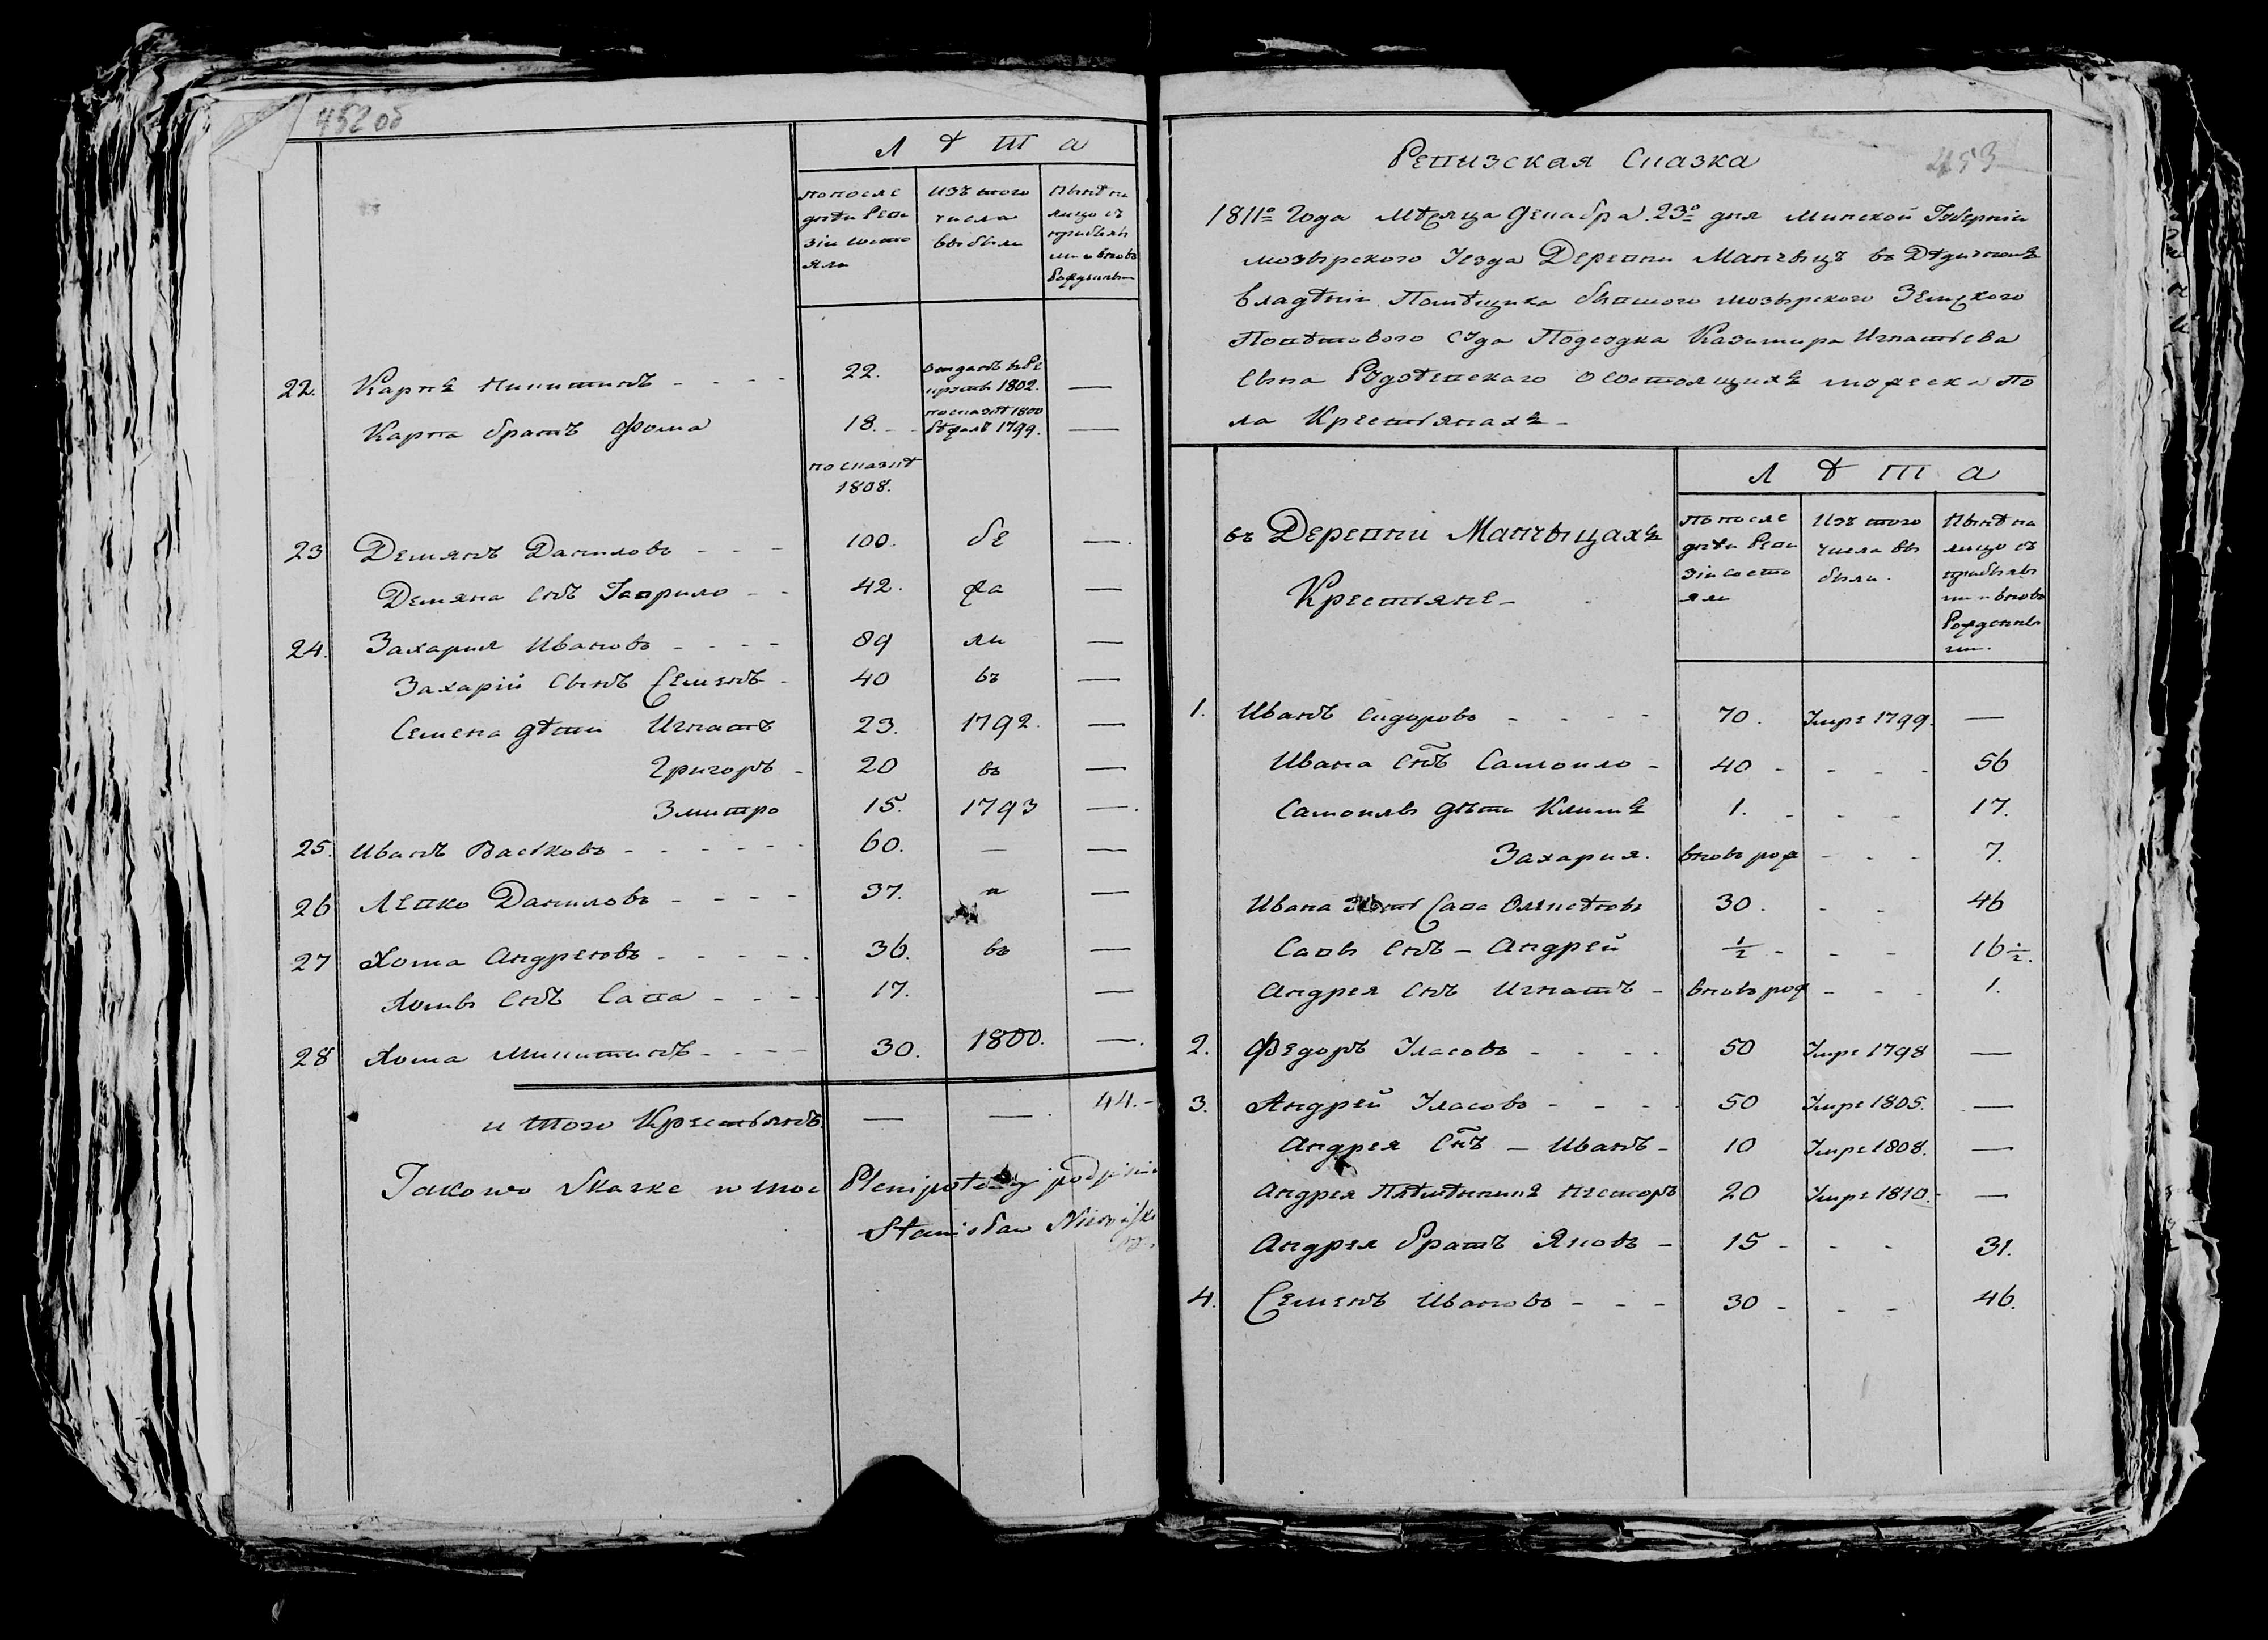 452 об
Л ѣ т а
по после
дней Реви
зіи состо
яло
изъ того
числа
выбыли
Нынѣ на
лицо съ
прибылы
ми и вновь
Рожденны
22. Карпъ Никитинъ - - - - 22. отданъ въ Ре
круты 1802. —
Карпа братъ Фома 18. - по сказкѣ 1800
бѣжалъ 1799. —
по сказкѣ
1808.
23 Демянъ Даниловъ - - - 100. бе —.
Демяна снъ Гаврило - - 42. жа —
24. Захарія Ивановъ - - - - 89 ли —
Захарій сынъ Семенъ - 40 въ —
Семена дѣти Игнатъ 23. 1792. —
Григоръ - 20 въ —
Змитро 15. 1793 —.
25. Иванъ Васковъ - - - - - - 60. — —
26 Левко Даниловъ - - - - 37. и —
27 Хома Андреевъ - - - - - 36. въ —
Хомы снъ Сава - - - - 17. —
28 Хома Микитинъ - - - - 30. 1800. —.
и того Крестьянъ — —. 44. -
Takowo Skazke w moc Plenipotencyi podpisał
Stanisław
453
Ревизская Сказка
1811о Года Мѣсяца Декабра 23о дня Минской Губерніи
мозырского Уезда Деревни Манчыцъ въ Дѣдичномъ
Владѣніи Помѣщика бывшого мозырского Земского
Повѣтового Суда Подсудка Казимира Игнатьева
Сына о состоящихъ мужеска по
ла Крестьянахъ -
въ Деревни Манчыцахъ
Крестьяне -
Л ѣ т а
по после
дней Реви
зіи состо
яли
Изъ того
числа вы
были.
Нынѣ на
лицо съ
прибылы
ми и вновь
Рожденны
ми.
1. Иванъ Сидоровъ - - - - 70. Умре 1799. —
Ивана снъ Самойло - 40 - - - - 56
Самойлы дѣти Климъ 1. - - - 17.
Захария. вновь рож - - - 7.
Ивана Сава 30. - - 46
Савы снъ - Андрей ½ - - - 16½.
Андрея снъ Игнатъ - вновь рож - - - 1.
2. Федоръ Уласовъ - - - - 50 Умре 1798 —
3. Андрей Уласовъ - - - - 50 Умре 1805. —
Андрея снъ — Иванъ - 10 Умре 1808. —
Андрея Племѣнникъ Несторъ 20 Умре 1810. —
Андрея братъ Яковъ - 15 - - - 31.
4. Семенъ Ивановъ - - - 30 - - - 46.